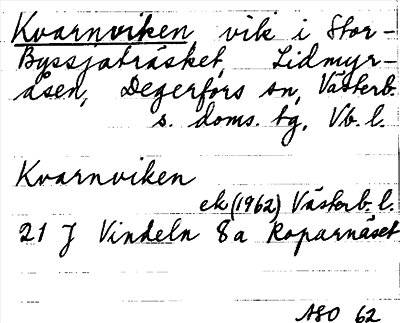 Kvarnviken vik i Stor-
Byssjaträsket, Lidmyr-
åsen, Degerfors sn, Västerb.
s. doms. tg, Vb. l.
Kvarnviken
ek (1962) Västerb. l.
21 J Vindeln 8a Roparnäset
ASO 62